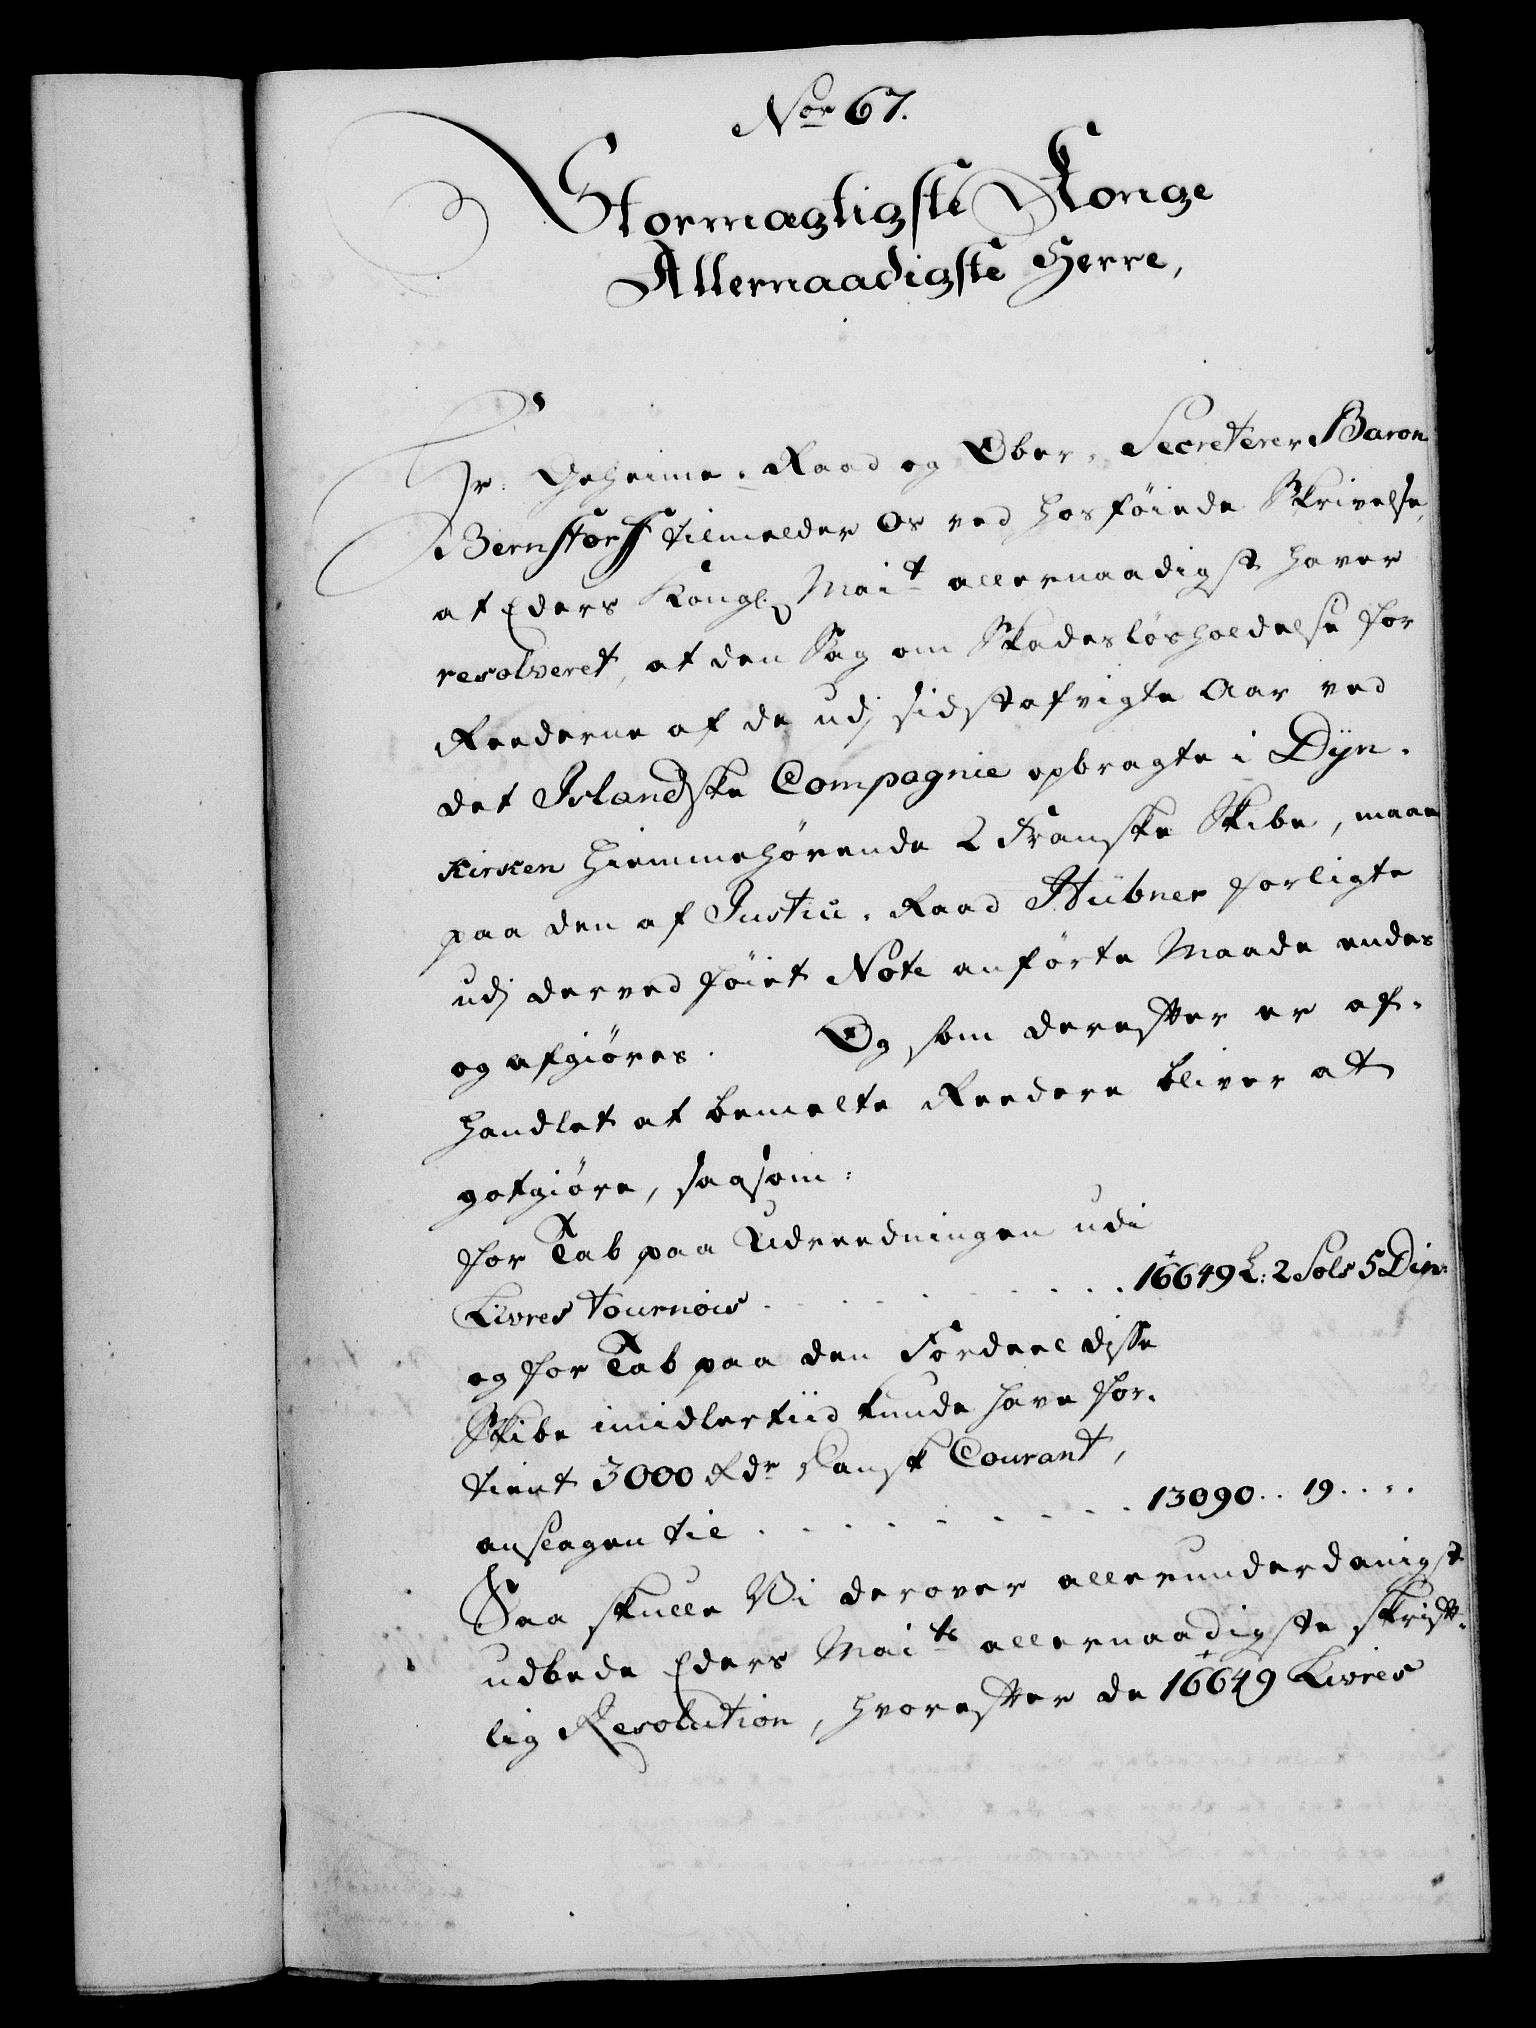 Nor 67.
Stormægtigste Konge
Allernaadigste Herre,
Hr. Geheime-Raad og Ober-Secreterer Baron
Bernstorff tilmelder Os ved hosføiede Skrivelse,
at Eders Kongl. Mait allernaadigst haver
resolveret, at den Sag om Skadesløsholdelse for
Reederne af de udj sidstafvigte Aar ved
det Islandske Compagnie opbragte i Dyn-
kirken hiemmehørende 2 Franske Skibe, maae
paa den af Justice-Raad Hübner forligte
udj derved føiet Note anførte Maade endes
og afgiøres. Og som derefter er af-
handlet at bemelte Reedere bliver at
gotgiøre, saasom:
for Tab paa Udreedningen udi
Livres tournois . . . . . . . . . 16649 L: 2 Sols 5 Din:
og for Tab paa den Fordeel disse
Skibe imidlertiid kunde have for-
tient 3000 Rdr Dansk Courant,
anslagen til . . . . . . . . . 13090 . . 19 . . . .
Saa skulle Vi derover allerunderdanigst
udbede Eders Maits allernaadigste skrift-
lig Resolution, hvorefter de 16649 Livres